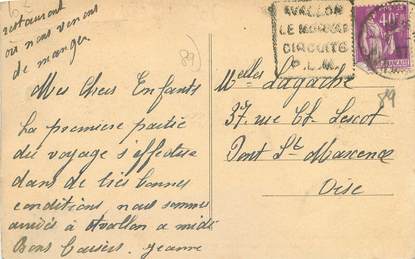 restaurant
où nous venons
de manger
89
Mes Chers Enfants
La première partie
du voyage s'effectue
dans de très bonnes
conditions nous sommes
arrivés à Avallon a midi
Bons baisers. Jeanne
AVALLON
LE MORVAN
CIRCUITS
P.L.M.
40c
Melles Lagache
37 rue Ct. Lescot
Pont Ste Maxence
Oise
89